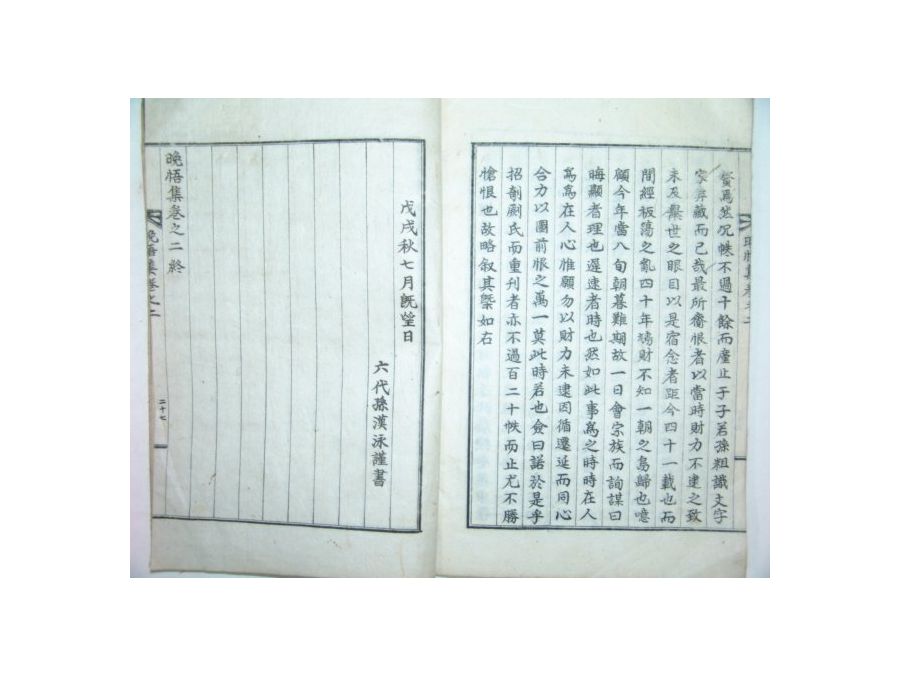 爲然況帙不過十餘而庢止于子若孫粗識文字
家弆藏而已哉最所齎恨者以當時財力不逮之致
未及繫世之眼目以是宿念者距今四十一載也而
間經板蕩之亂四十年鳩財不知一朝之烏歸也噫
顧今年當八旬朝暮難期故一日會宗族而詢謀曰
晦顯者理也遲速者時也然如此事爲之時時在人
爲爲在人心惟願勿以財力未逮因循遷延而同心
合力以圖前恨之萬一莫此時若也僉曰諾於是乎
招剞劂氏而重刊者亦不過百二十帙而止尤不勝
愴恨也故略叙其槩如右
晚悟集卷之二
戊戌秋七月旣望日
六代孫漢泳謹書
晚悟集卷之二終
晚悟集卷之二
二十七